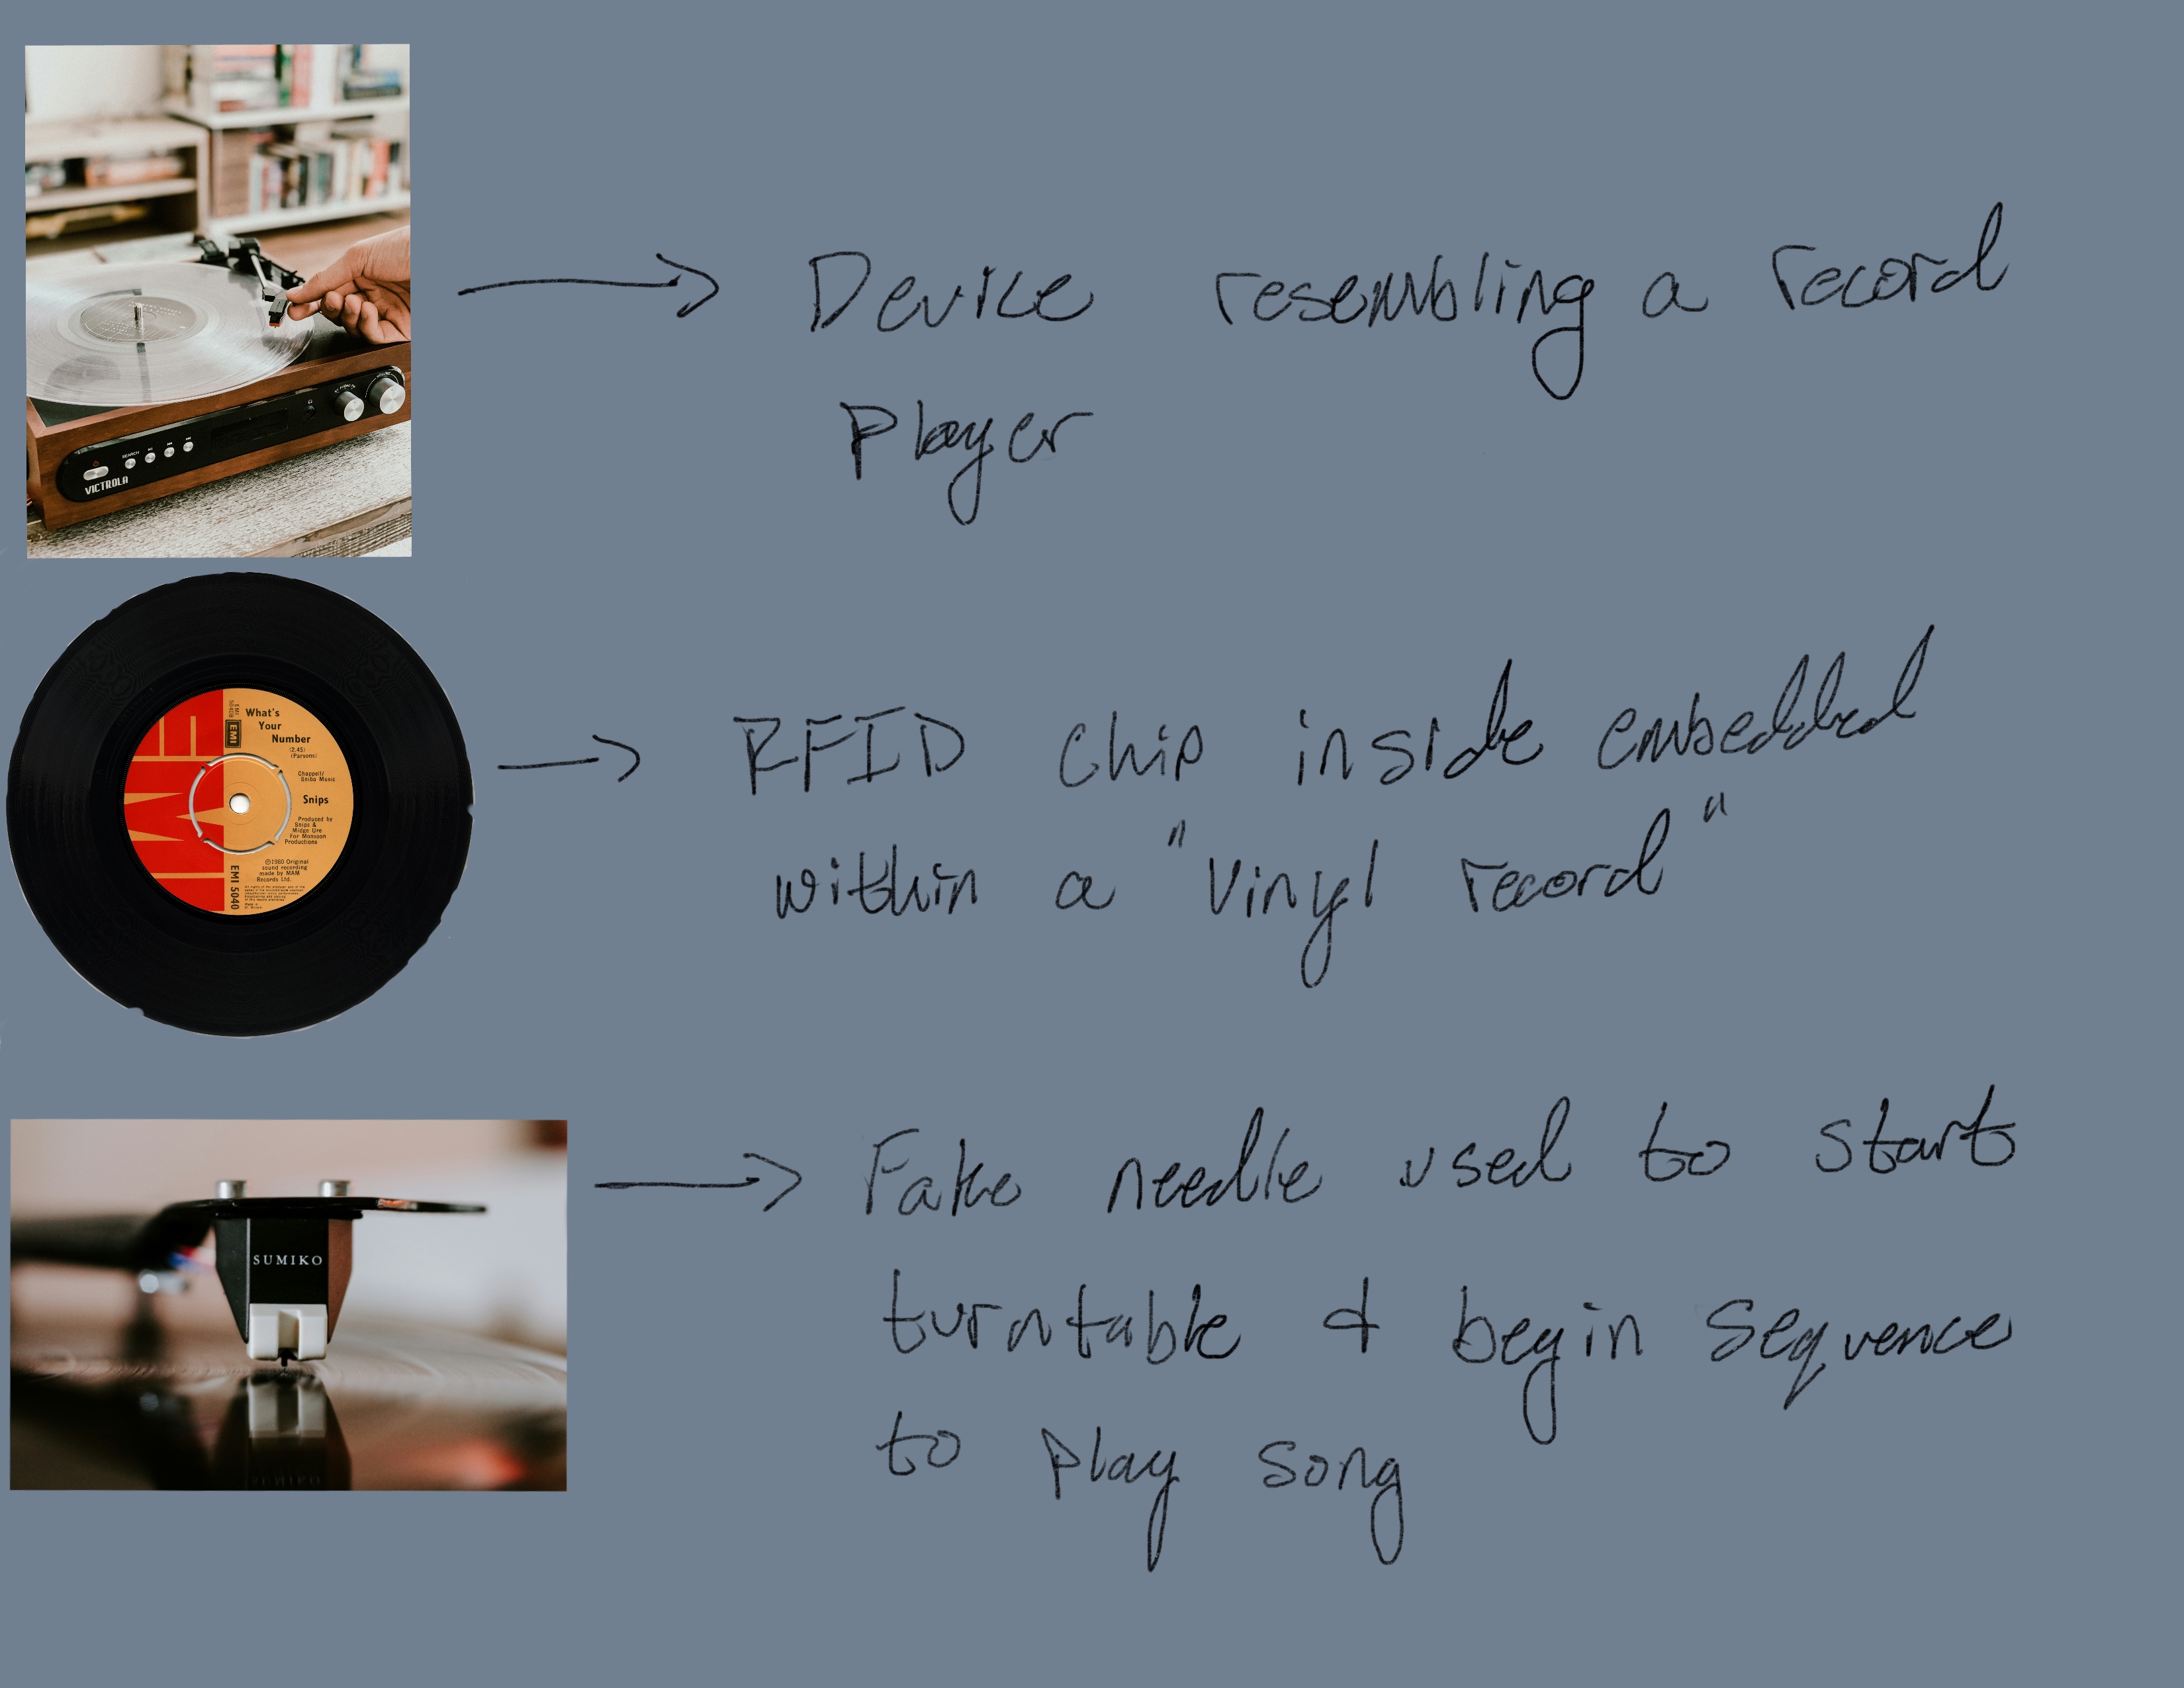 VICTROLA
SEARCH
Device resembling a record
Player
What's
Your
Number
(2.45)
(Parsons)
EMI
Chappell/
Snibs Music
Snips
Produced by
Snips &
Midge Ure
For Monsoon
Productions
℗1980 Original
sound recording
made by MAM
Records Ltd.
EMI 5040
RFID Chip inside embedded
within a "Vinyl record"
SUMIKO
Fake needle used to start
turntable & begin sequence
to play song